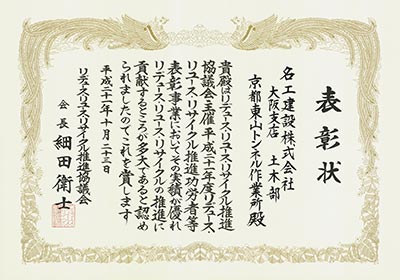 表彰状
名工建設株式会社
大阪支店 土木部
京都東山トンネル作業所殿
貴殿はリデュース・リユース・リサイクル推進
協議会主催平成二十一年度リデュース、
リユース・リサイクル推進功労者等
表彰事業においてその実績が優れ
リデュース・リユース・リサイクルの推進に
貢献するところが多大であると認め
られましたのでこれを賞します
平成二十一年十月二十三日
リデュース・リユース・リサイクル推進協議会
会長 細田衛士